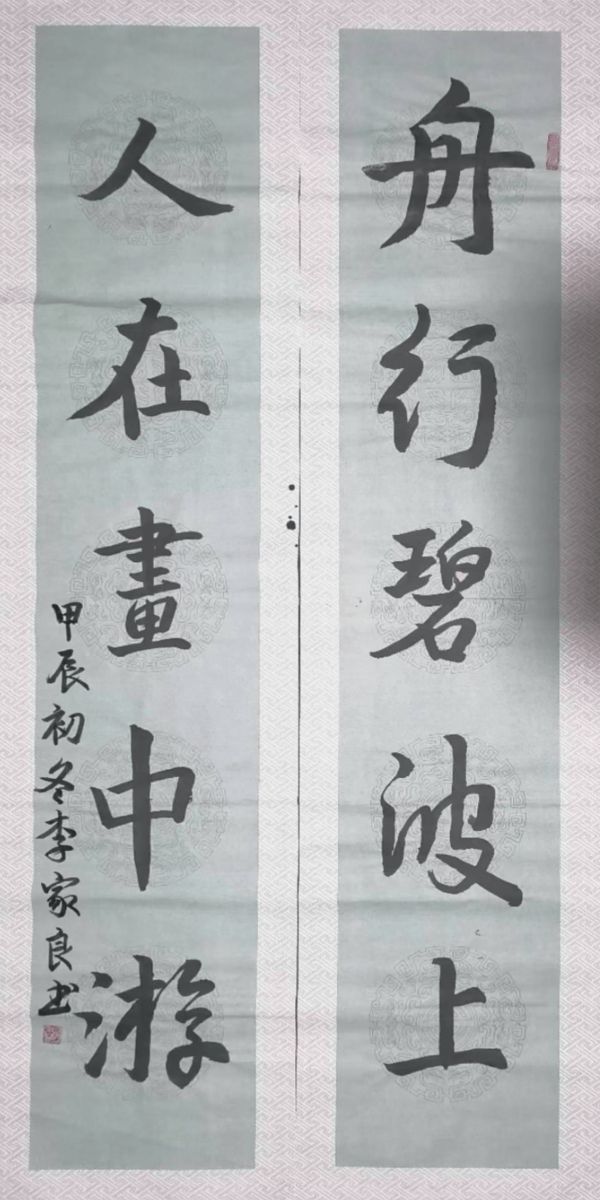 舟行碧波上
人在畫中游
甲辰初冬李家良书